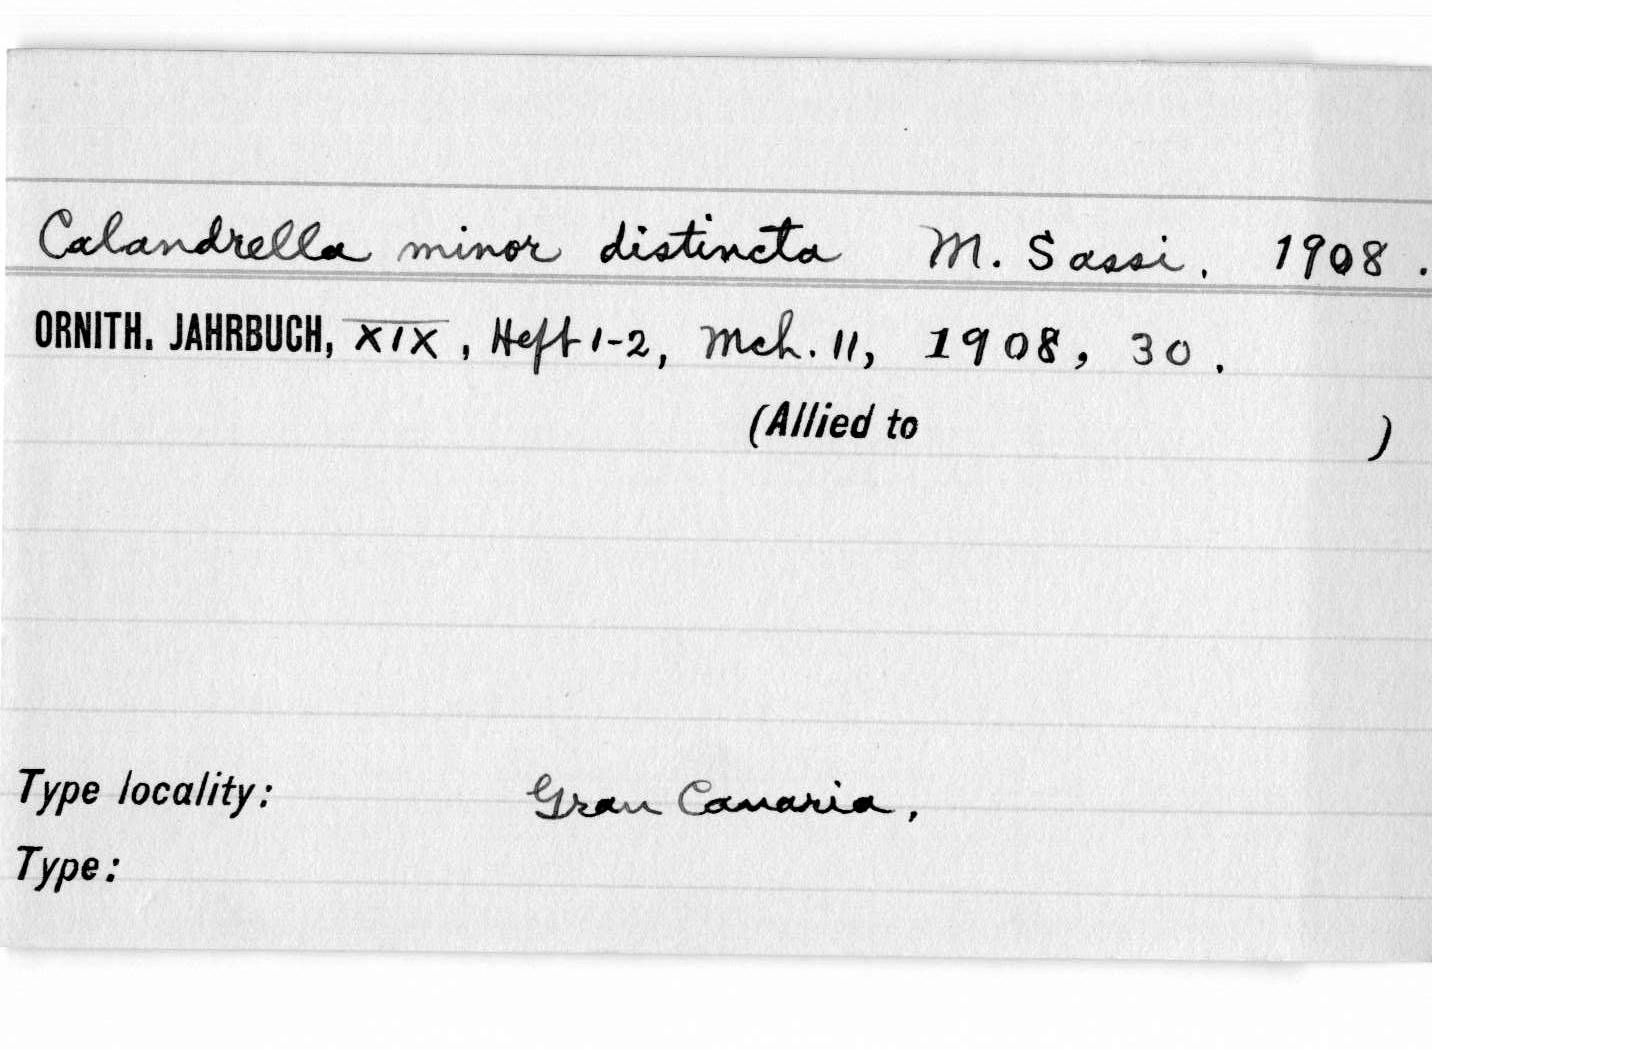 Calandrella minor distincta M. Sassi. 1908.
ORNITH. JAHRBUCH, XIX, Heft 1-2, Mch. 11, 1908, 30.
(Allied to )
Type locality: Gran Canaria,
Type: